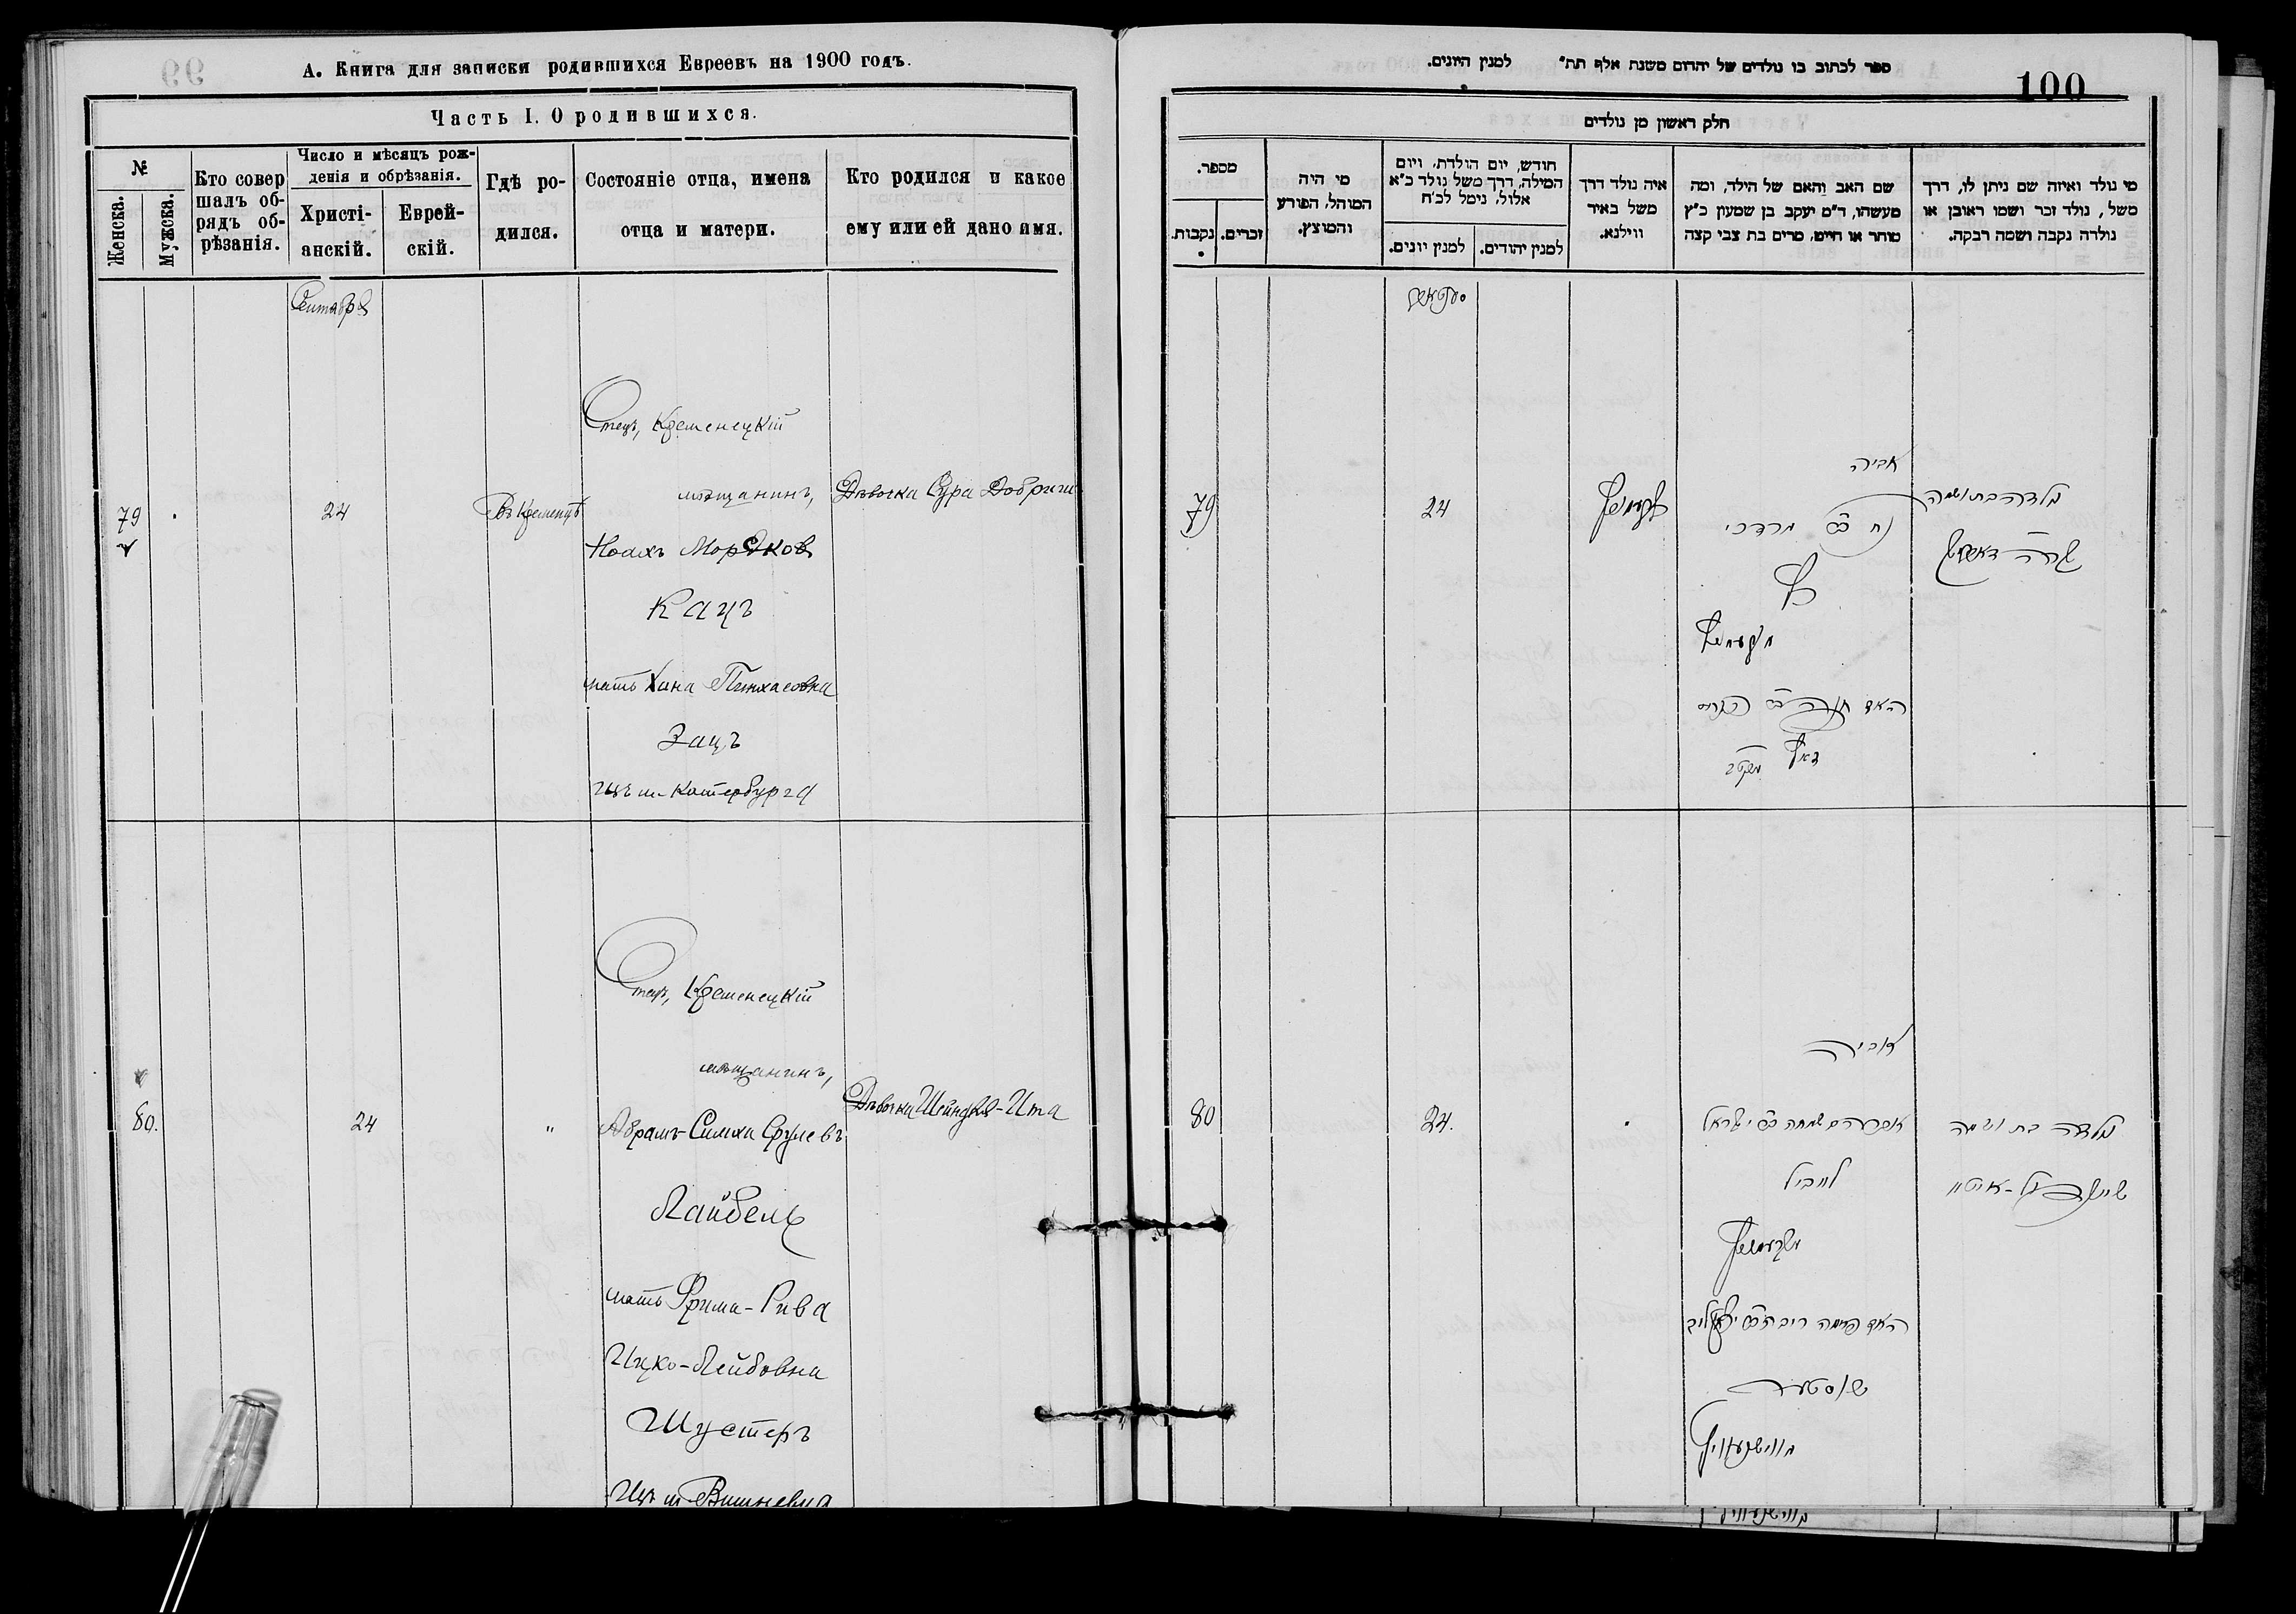 А. Книга для записки родившихся Евреевъ на 1900 годъ.
Часть I. О родившихся.
№
Женска.
Мужска.
Кто совер
шалъ об-
рядъ об-
рѣзанія.
Число и мѣсяцъ рож-
денія и обрѣзанія.
Христі-
анскій.
Еврей-
скій.
Гдѣ ро-
дился.
Состояніе отца, имена
отца и матери.
Кто родился и какое
ему или ей дано имя.
Сентября
79
24
Въ Кременцѣ
Отецъ, Кременецкій
мѣщанинъ,
Ноахъ Мордков
Кацъ
мать Хана Пинхасовна
Зацъ
изъ м. Катербурга
Дѣвочка Сура Добриш
80.
24
"
Отецъ, Кременецкій
мѣщанинъ,
Абрамъ-Симха Срулевъ
Лайбель
мать Фрима-Рива
Ицко-Лейбовна
Шустеръ
Изъ м Вишневца
Дѣвочка Шейндля-Ита
ספר לכתוב בו נולדים של יהדום משנת אלף תת״ למנין היונים.
100
חלק ראשון מן נולדים
מספר.
נקבות.
זכרים.
מי היה
המוהל, הפורע
והמוצץ.
חודש, יום הולדת, ויום
המילה, דרך משל נולד כ״א
אלול, נימל לכ״ח
למנין יונים.
למנין יהודים.
איה נולד דרך
משל באיר
ווילנא.
שם האב והאם של הילד, ומה
מעשהו, ד״מ יעקב בן שמעון כ״ץ
סוחר או חייט, מרים בת צבי קצה
מי נולד ואיזה שם ניתן לו, דרך
משל, נולד זכר ושמו ראובן או
נולדה נקבה ושמה רבקה.
79
24
אביה
נח ב״ר מרדכי
כץ
נולדה בת ושמה
שרה דאבריש
80
24.
אביה
אברהם שמחה ב״ר ישראל
לייביל
שוסטער
נולדה בת ושמה
שיינדיל-איטא